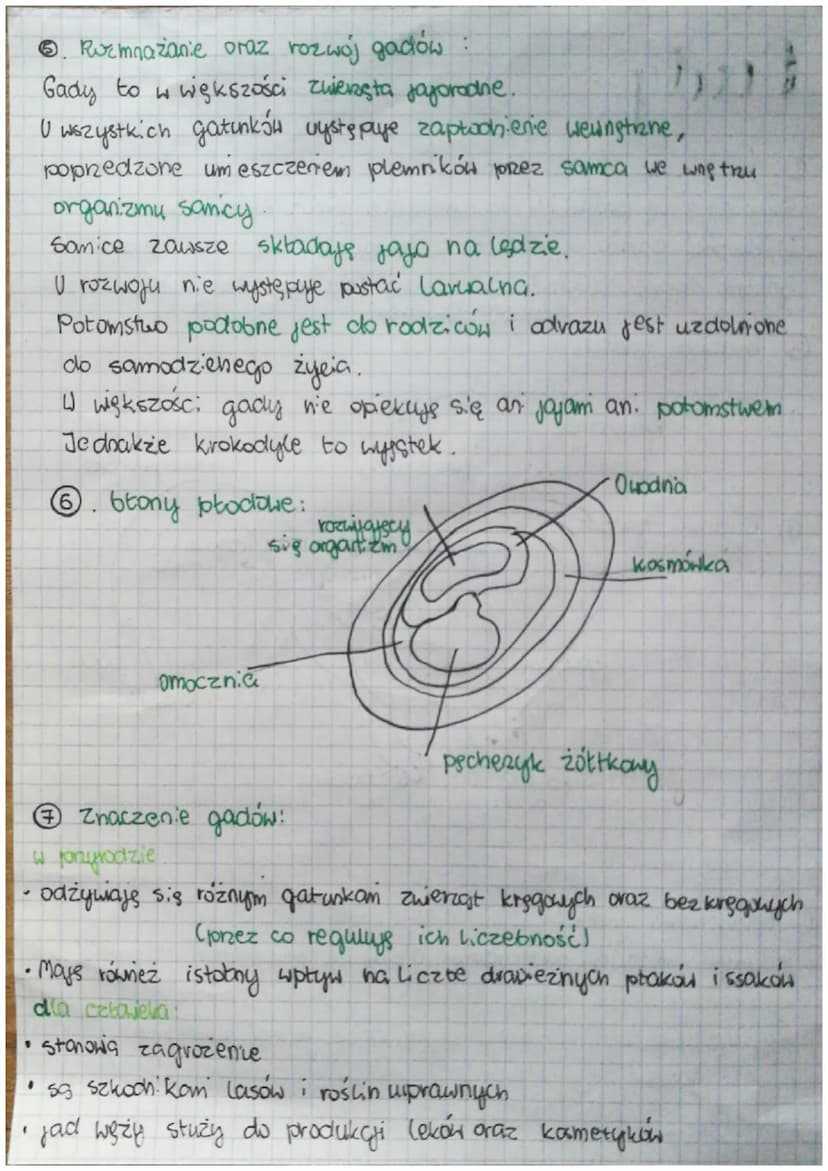 ⑤. Rozmnażanie oraz rozwój gadów :
Gady to w większości zwierzęta jajorodne.
U wszystkich gatunków występuje zapłodnienie wewnętrzne,
poprzedzone umieszczeniem plemników przez samca we wnętrzu
organizmu samicy.
Samice zawsze składają jaja na lądzie.
W rozwoju nie występuje postać larwalna.
Potomstwo podobne jest do rodziców i odrazu jest uzdolnione
do samodzienego życia.
W większości gady nie opiekują się ani jajami ani potomstwem
Jednakże krokodyle to wyjątek.
⑥. błony płodowe:
Owodnia
rozwijający
się organizm
kosmówka
omocznia
pęcherzyk żółtkowy
⑦ Znaczenie gadów:
w przyrodzie
• odżywiają się różnym gatunkam zwierząt kręgowych oraz bezkręgowych
(przez co regulują ich liczebność)
• Mają również istotny wpływ na liczbe drapieżnych ptaków i ssaków
dla człowieka:
• stanowią zagrożenie
• są szkodnikami lasów i roślin uprawnych
• jad węży służy do produkcji leków oraz kosmetyków